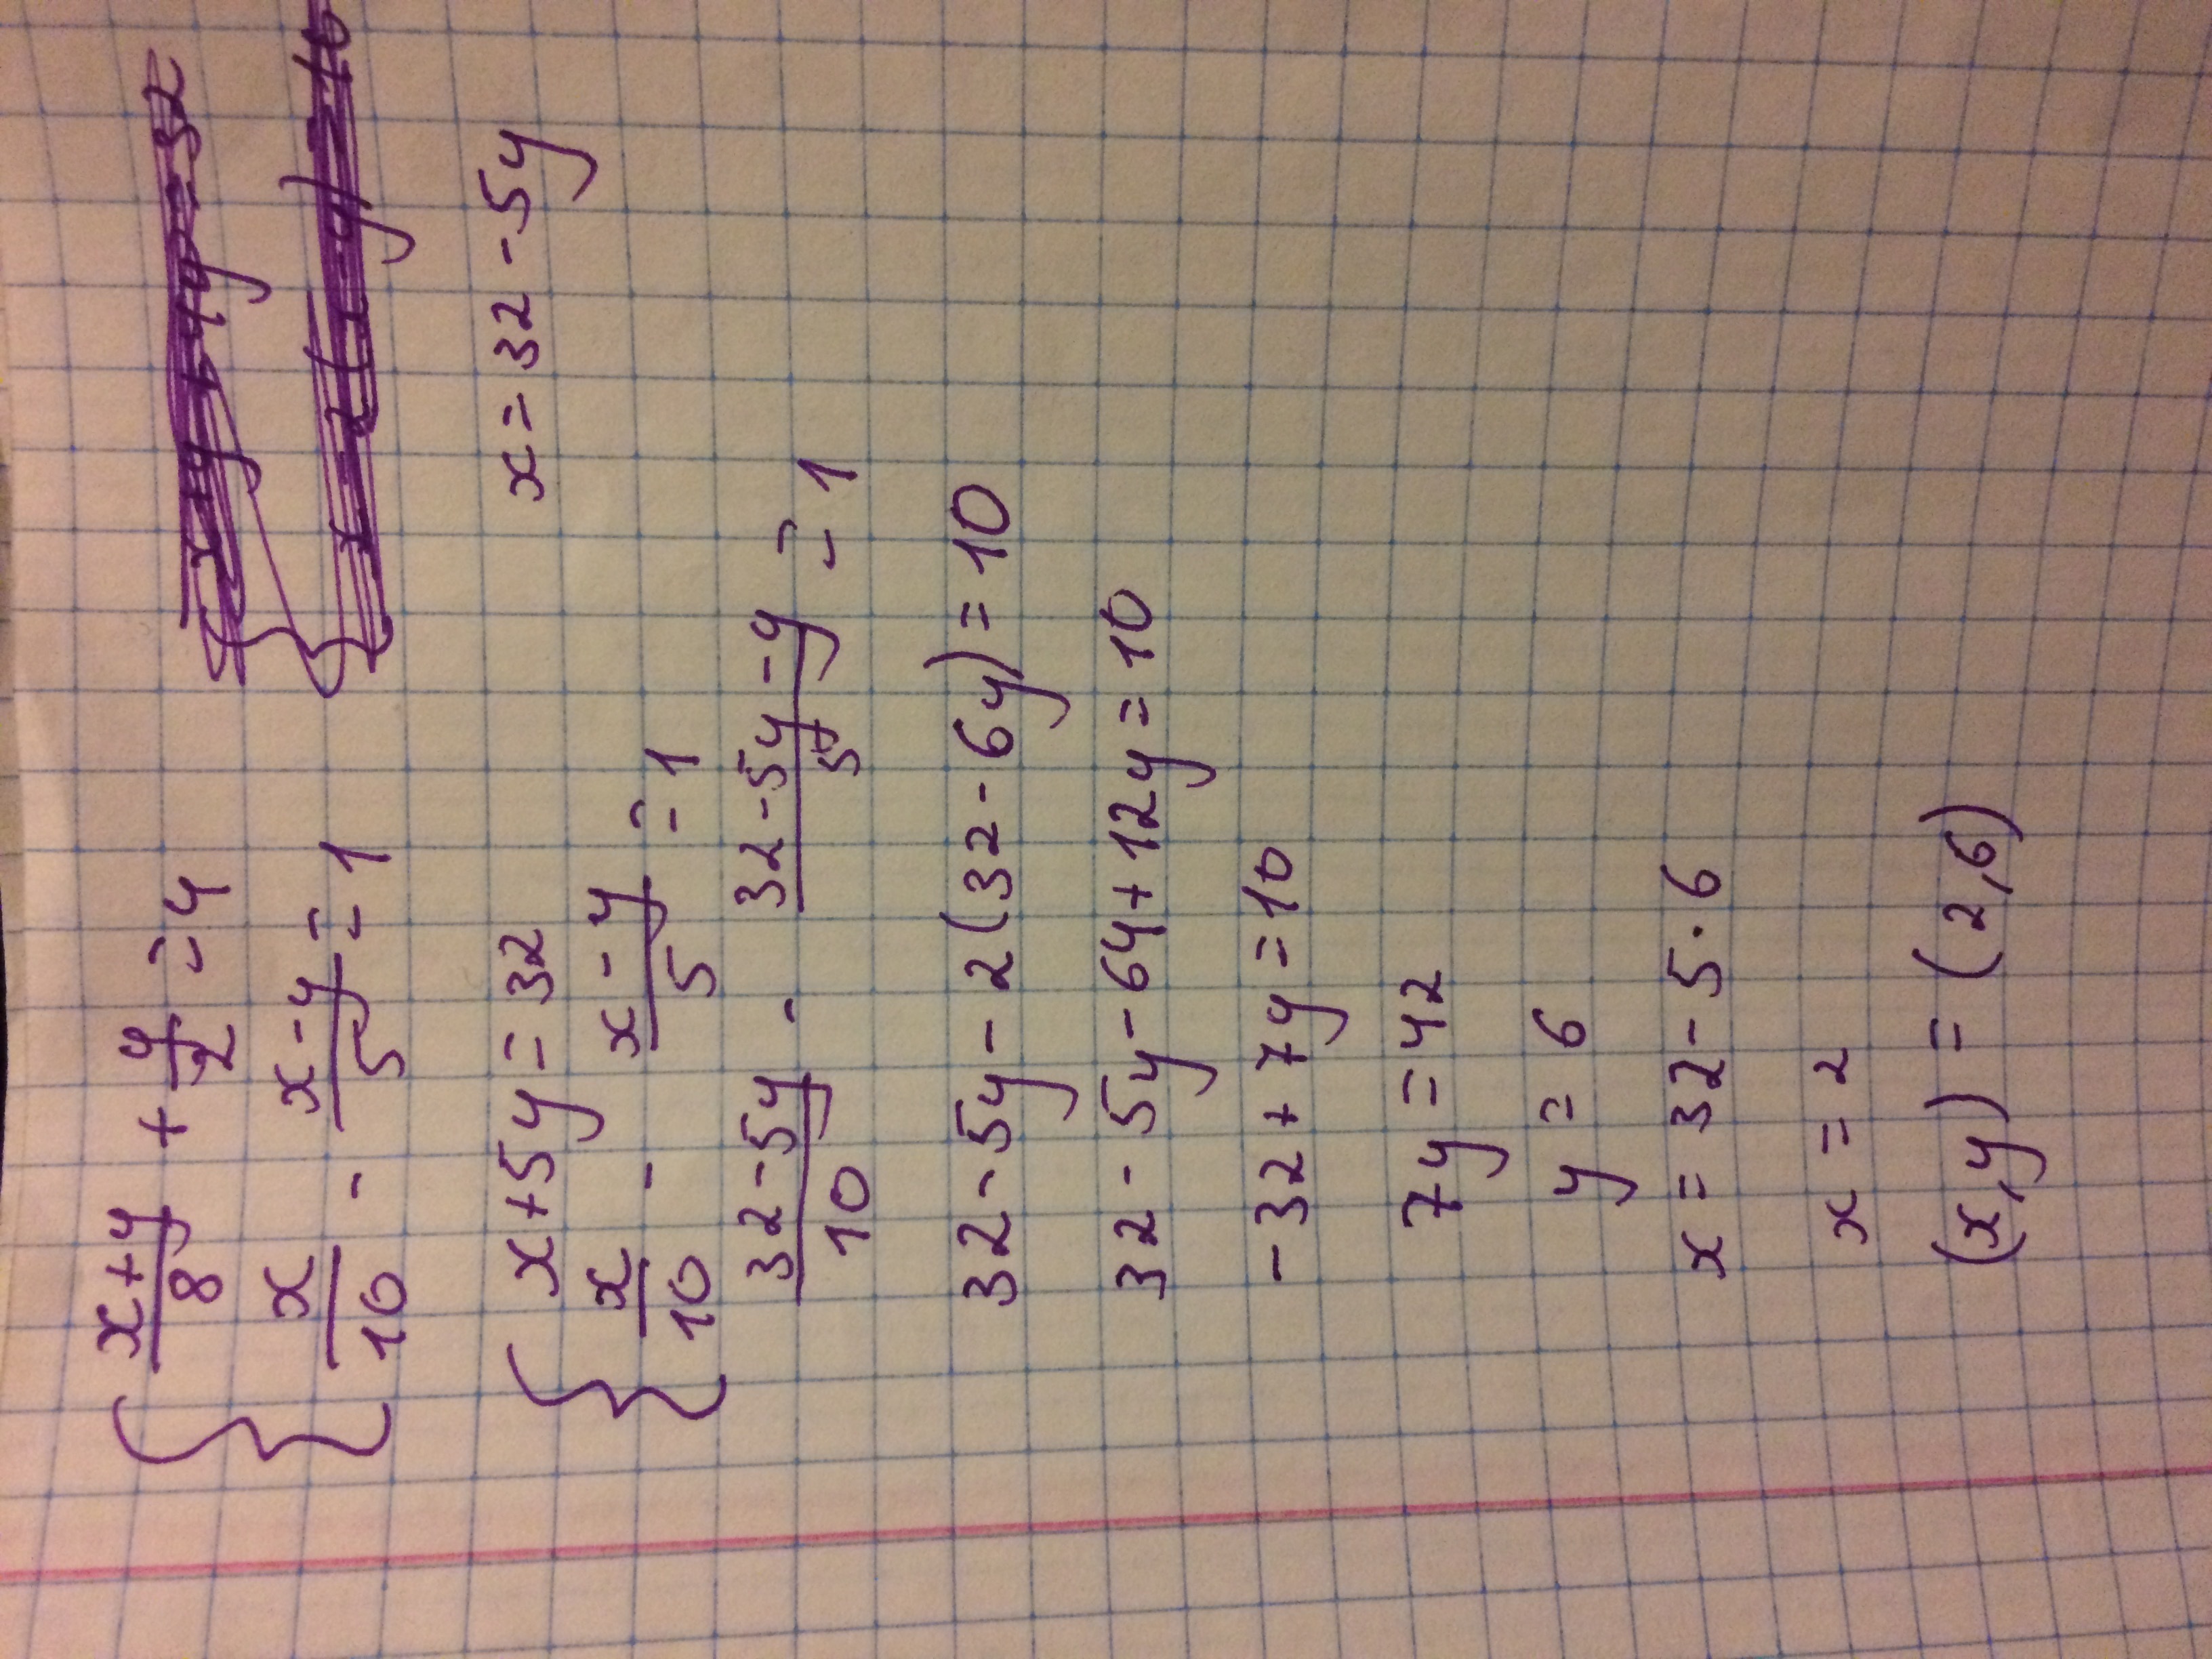 { (x+y)/8 + y/2 = 4
x/10 - (x-y)/5 = 1
{ x+5y=32 x=32-5y
x/10 - (x-y)/5 = 1
(32-5y)/10 - (32-5y-y)/5 = 1
32-5y-2(32-6y)=10
32-5y-64+12y=10
-32+7y=10
7y=42
y=6
x=32-5·6
x=2
(x,y)=(2,6)